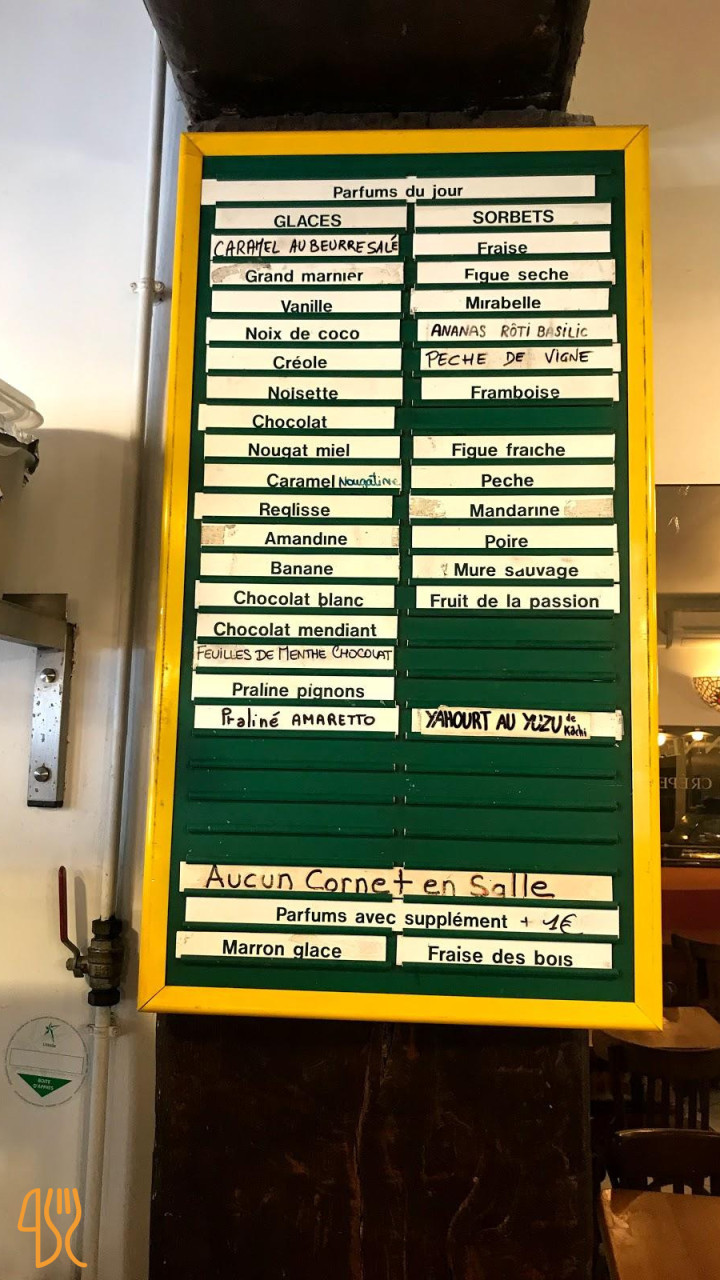 Parfums du jour
GLACES
CARAMEL AU BEURRE SALÉ
Grand marnier
Vanille
Noix de coco
Créole
Noisette
Chocolat
Nougat miel
Caramel Nougatine
Reglisse
Amandine
Banane
Chocolat blanc
Chocolat mendiant
FEUILLES DE MENTHE CHOCOLAT
Praline pignons
Praliné AMARETTO
SORBETS
Fraise
Figue seche
Mirabelle
ANANAS RÔTI BASILIC
PECHE DE VIGNE
Framboise
Figue fraiche
Peche
Mandarine
Poire
Mure sauvage
Fruit de la passion
YAHOURT AU YUZU de Kächi
AUCUN CORNET en Salle
Parfums avec supplément + 1€
Marron glace
Fraise des bois